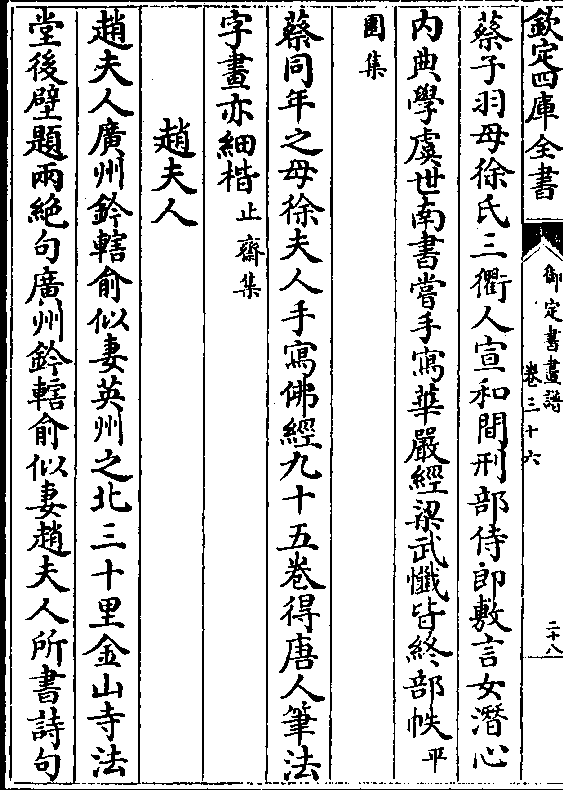 欽定四庫全書
御定書畫譜
卷三十六
二十八
蔡子羽母徐氏三衢人宣和間刑部侍郎敷言女潛心
内典學虞世南書嘗手寫華嚴經梁武懺皆終部帙平
園集
蔡同年之母徐夫人手寫佛經九十五卷得唐人筆法
字畫亦細楷止齋集
趙夫人
趙夫人廣州鈐轄俞似妻英州之北三十里金山寺法
堂後壁題兩絶句廣州鈐轄俞似妻趙夫人所書詩句